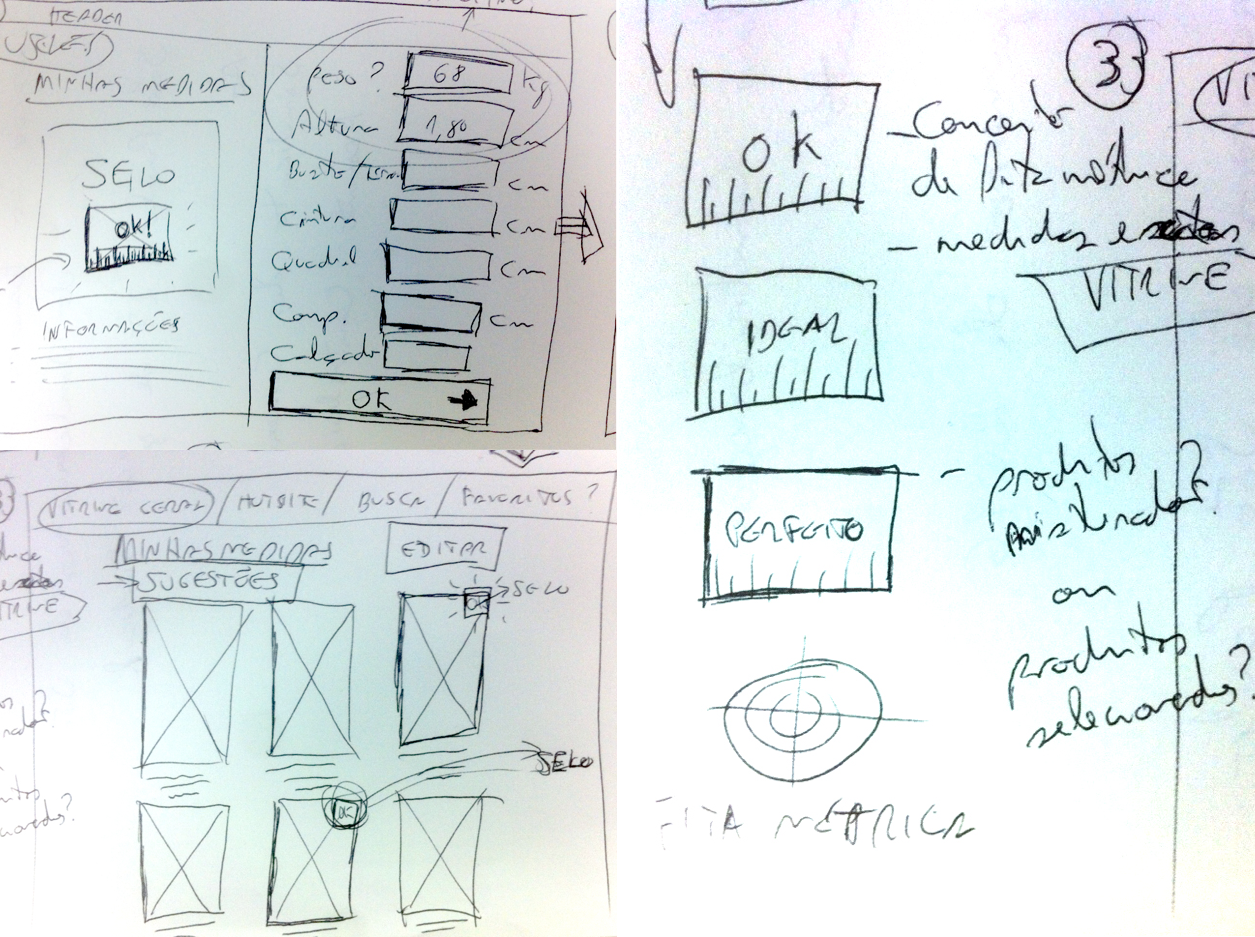 HEADER
MINHAS MEDIDAS
SELO
OK!
INFORMAÇÕES
Peso? 68 Kg
Altura 1,80 cm
cm
Cintura cm
Quadril cm
Comp. cm
Calçado
OK
VITRINE GERAL / HOTSITE / BUSCA / FAVORITOS?
MINHAS MEDIDAS
EDITAR
SUGESTÕES
OK
SELO
OK
SELO
3
OK
- Conceito
de fita métrica
- medidas exatas
VITRINE
IDEAL
PERFEITO
- produtos
misturados?
ou
produtos
selecionados?
FITA MÉTRICA